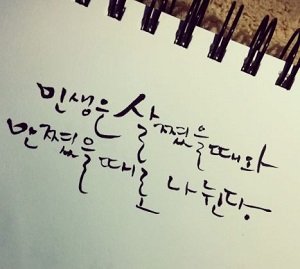 인생은 살쪘을때와
안쪘을때로 나뉜다.